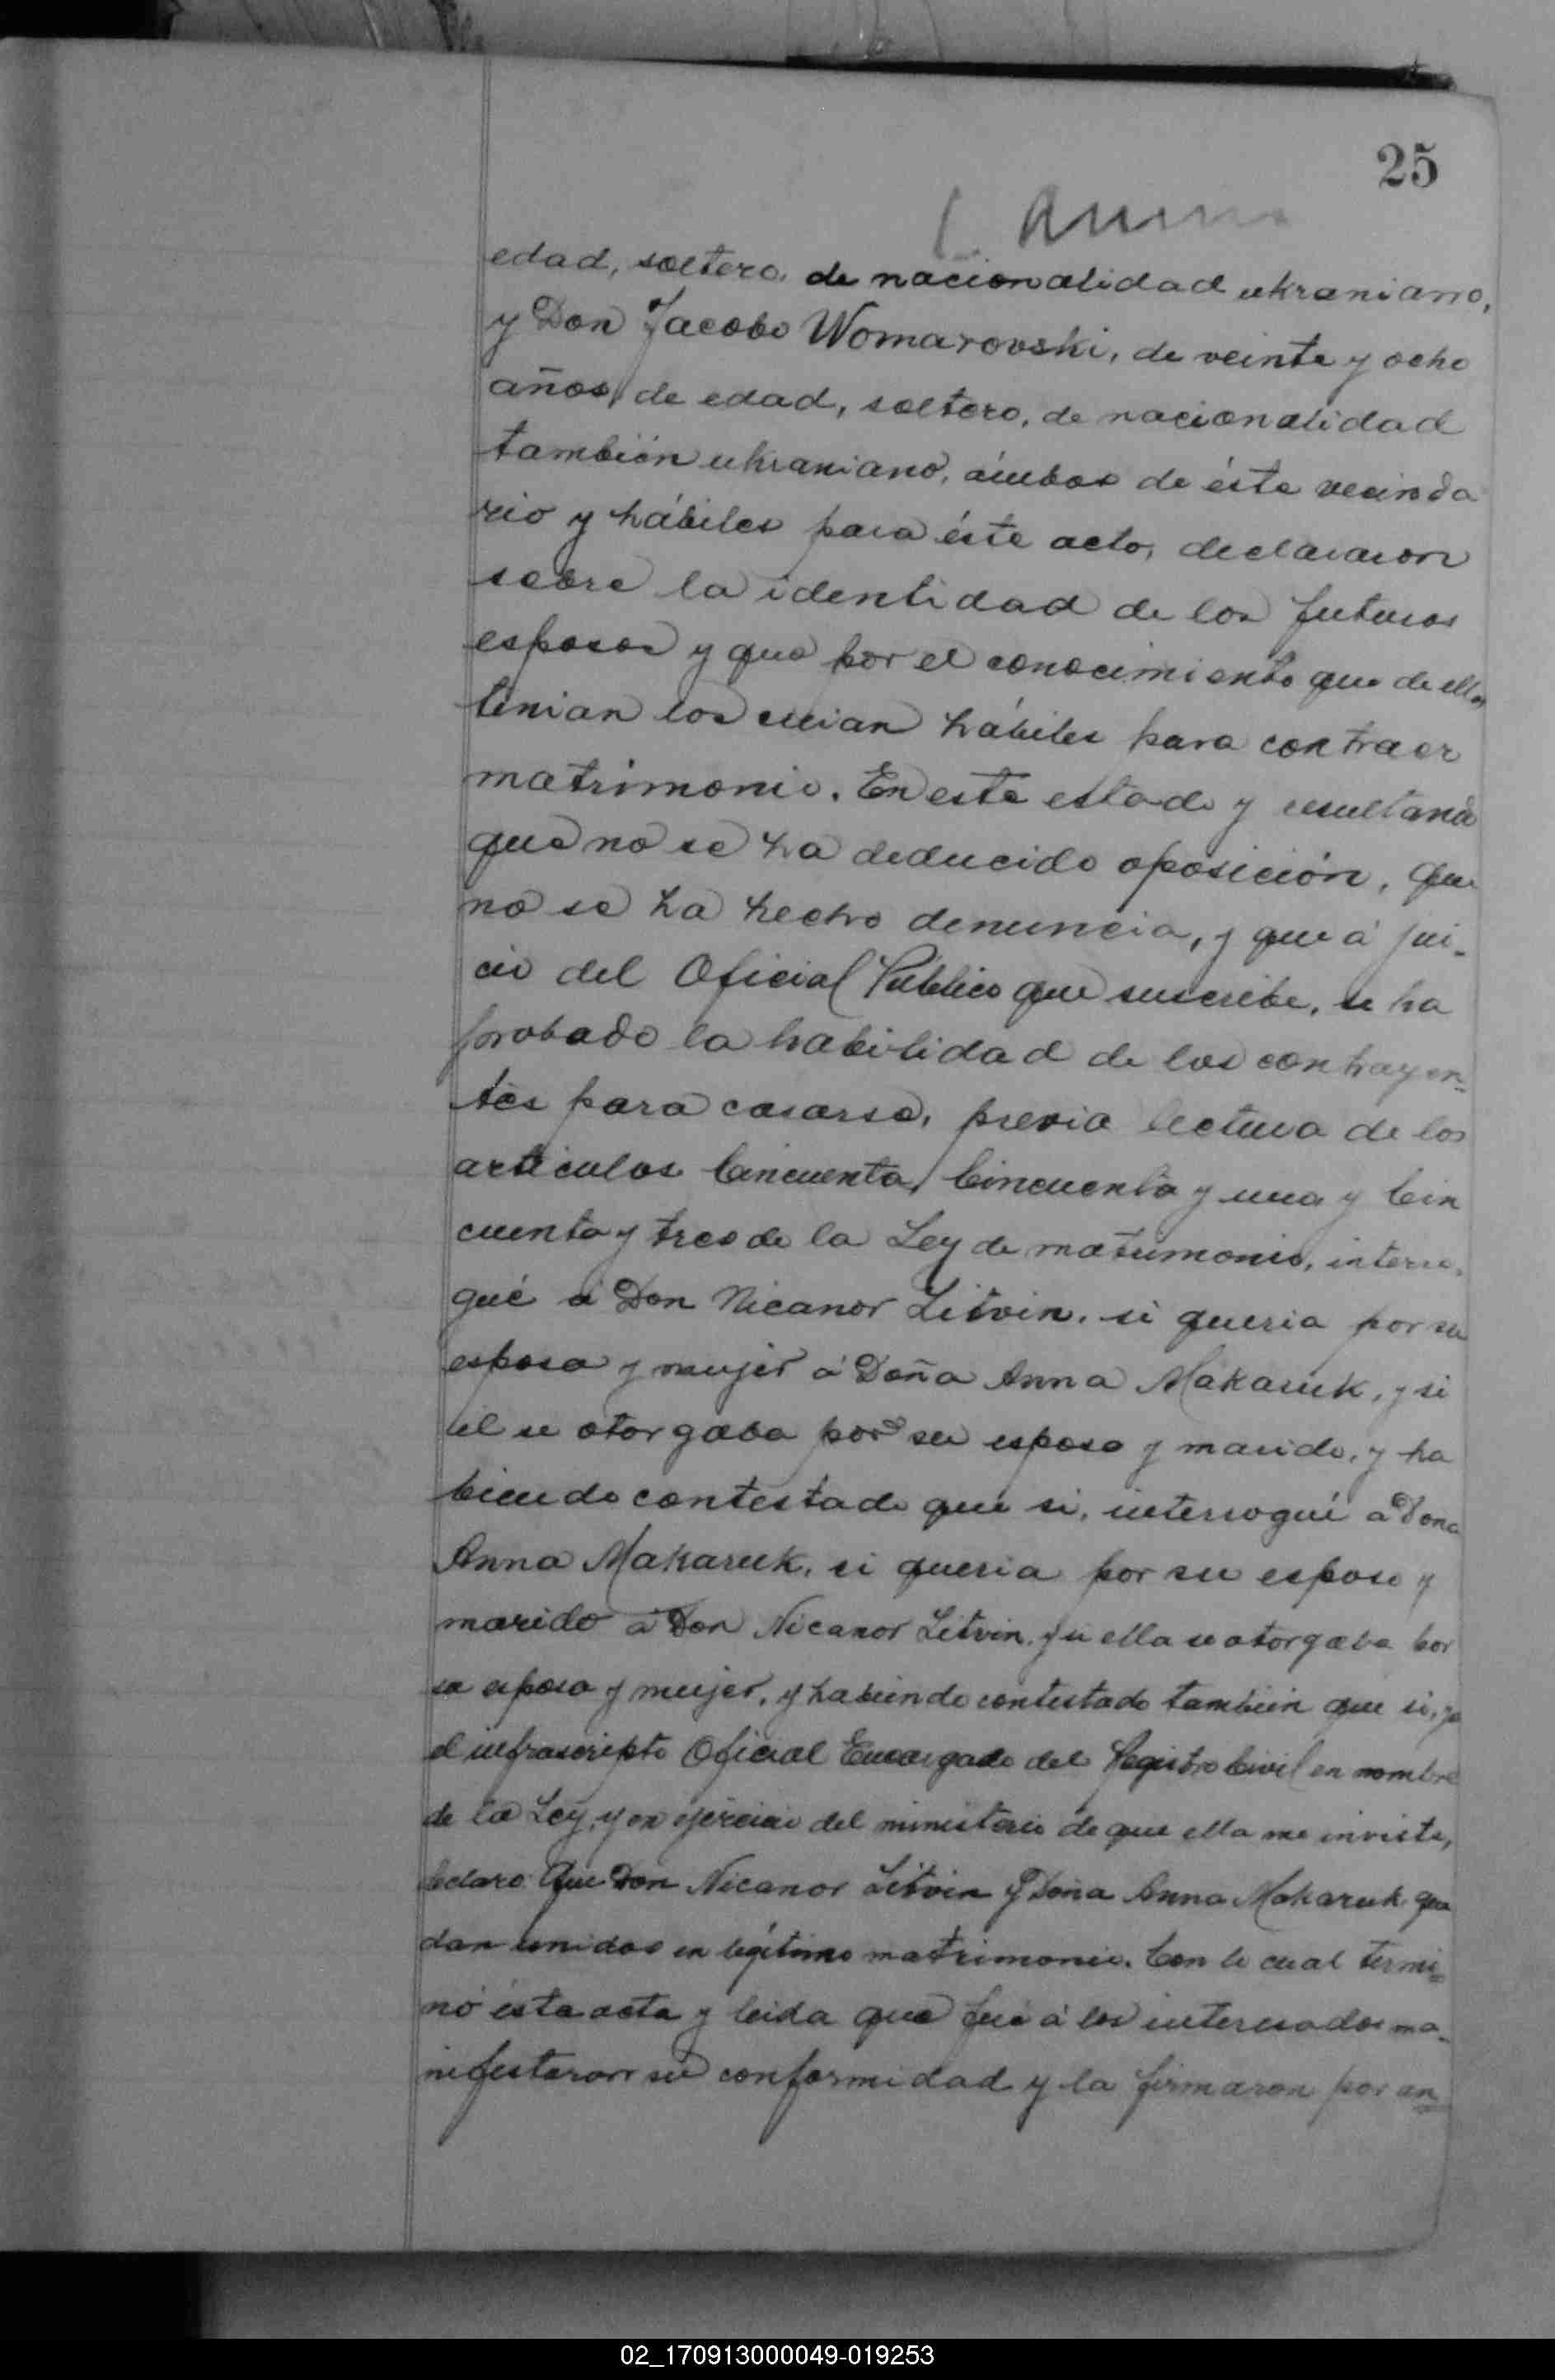 25
edad, soltero, de nacionalidad ukraniano,
y Don Jacobo Womarovski, de veinte y ocho
años, de edad, soltero, de nacionalidad
también ukraniano, ámbos de éste vecinda
rio y hábiles para éste acto, declararon
sobre la identidad de los futuros
esposos y que por el conocimiento que de ellos
tenian los creian hábiles para contraer
matrimonio. En este estado y resultando
que no se ha deducido oposición, que
no se ha hecho denuncia, y que á jui-
cio del Oficial Público que suscribe, se ha
probado la habilidad de los contrayen-
tes para casarse, previa lectura de los
articulos Cincuenta, Cincuenta y uno y Cin
cuenta y tres de la Ley de matrimonio, interro-
gué á Don Nicanor Litvin, si queria por su
esposa y mujer á Doña Anna Makaruk, y si
él se otorgaba por su esposo y marido, y ha
biendo contestado que si, interrogué a Doña
Anna Makaruk, si queria por su esposo y
marido á Don Nicanor Litvin, y si ella se otorgaba por
su esposa y mujer, y habiendo contestado también que si, yo
el infrascripto Oficial Encargado del Registro Civil en nombre
de la Ley, y en ejercicio del ministerio de que ella me inviste,
declaro: Que Don Nicanor Litvin y Doña Anna Makaruk que
dan unidos en legítimo matrimonio. Con lo cual termi-
nó ésta acta y leida que fué á los interesados ma-
nifestaron su conformidad y la firmaron por an-
02_170913000049-019253